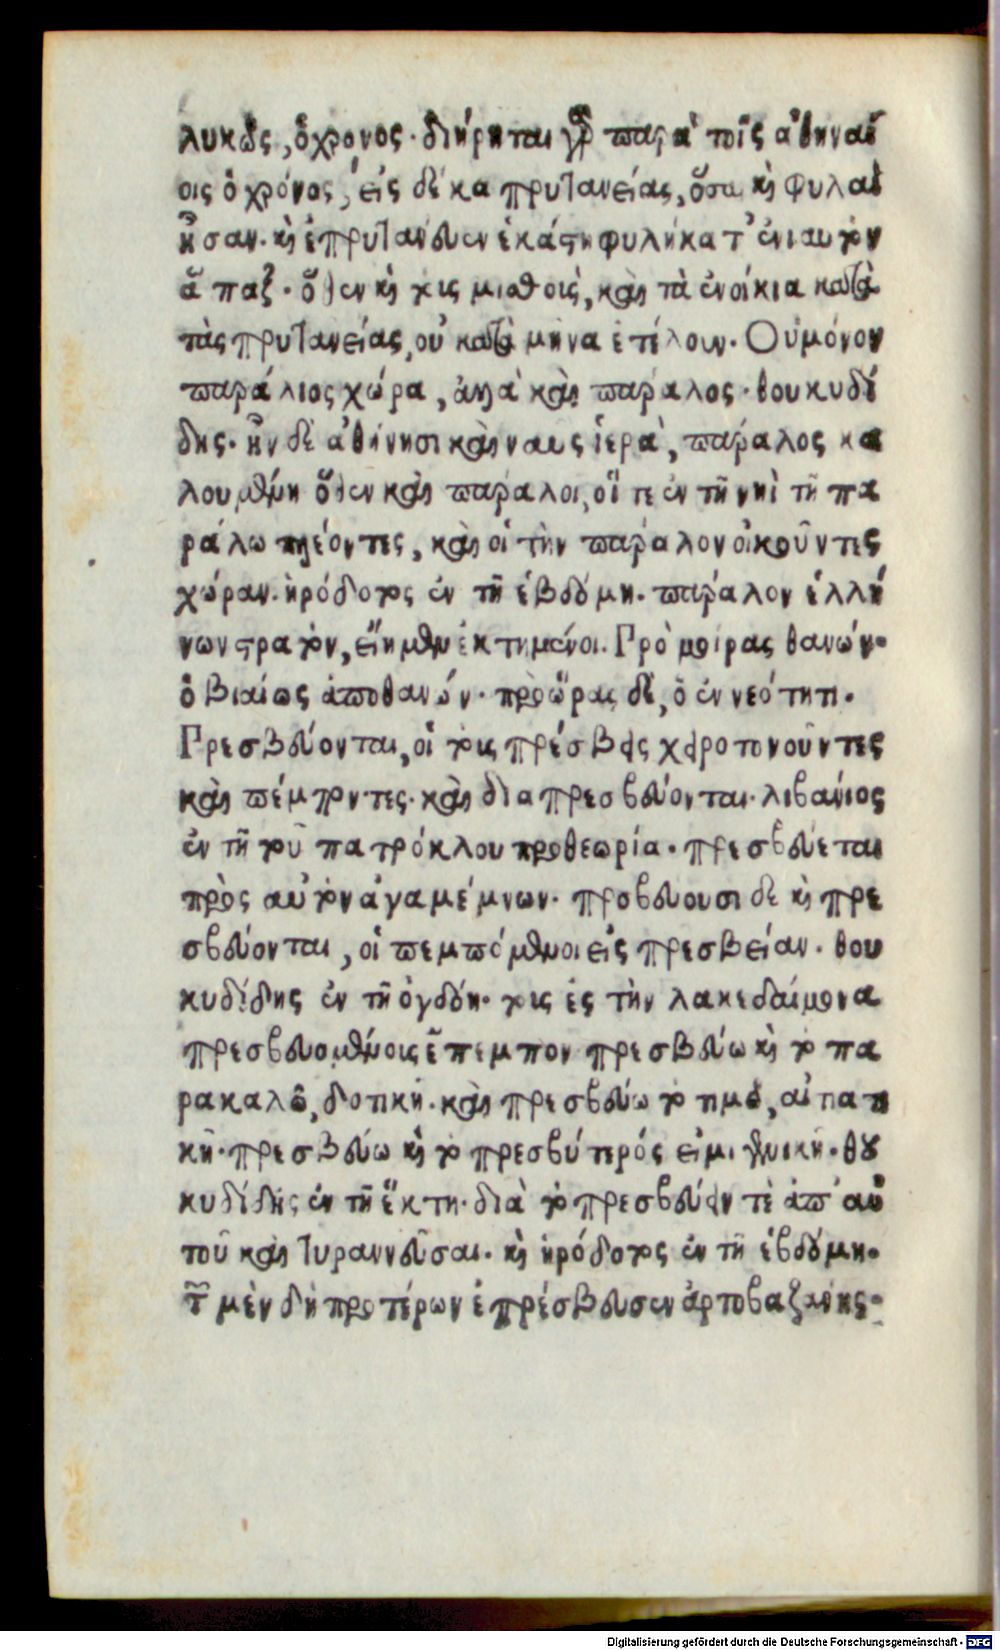 λυκῶς, ὁ χρόνος. διήρηται γὰρ παρὰ τοῖς ἀθηναί
οις ὁ χρόνος, εἰς δέκα πρυτανείας, ὅσαι κỳ φυλαὶ
ἦσαν. κỳ ἐπρυτάνευεν ἑκάστη φυλὴ κατ' ἐνιαυτὸν
ἅπαξ. ὅθεν κỳ τοὺς μισθοὺς, καὶ τὰ ἐνοίκια κατὰ
τὰς πρυτανείας, οὐ κατὰ μῆνα ἐτέλουν. Οὐ μόνον
παράλιος χώρα, ἀλλὰ καὶ πάραλος. θουκυδί
δης. ἦν δὲ ἀθήνησι καὶ ναῦς ἱερὰ, πάραλος κα
λουμένη ὅθεν καὶ πάραλοι, οἵ τε ἐν τῇ νηὶ τῇ πα
ράλω πλέοντες, καὶ οἱ τὴν πάραλον οἰκοῦντες
χώραν. ἡρόδοτος ἐν τῇ ἑβδόμη. πάραλον ἑλλή
νων στρατὸν, εἴημεν ἐκτημένοι. Πρὸ μοίρας θανών.
ὁ βιαίως ἀποθανών. πρὸ ὥρας δὲ, ὁ ἐν νεότητι.
Πρεσβεύονται, οἱ τοὺς πρέσβεις χειροτονοῦντες
καὶ πέμποντες. καὶ διαπρεσβεύονται. λιβάνιος
ἐν τῇ τοῦ πατρόκλου προθεωρία. πρεσβεύεται
πρὸς αὐτὸν ἀγαμέμνων. προσβεύουσι δὲ κỳ πρε
σβεύονται, οἱ πεμπόμενοι εἰς πρεσβείαν. θου
κυδίδης ἐν τῇ ὀγδόη. τοὺς ἐς τὴν λακεδαίμονα
πρεσβευομένους ἔπεμπον πρεσβεύω κỳ τὸ πα
ρακαλῶ, δοτική. καὶ πρεσβεύω τὸ τιμῶ, αἰτιατι
κῇ. πρεσβεύω κỳ τὸ πρεσβύτερός εἰμι γενική. θου
κυδίδης ἐν τῇ ἕκτη. διὰ τὸ πρεσβεύειν τὲ ἀπ' αὐ
τοῦ καὶ τυραννεῦσαι. κỳ ἡρόδοτος ἐν τῇ ἑβδόμη.
τῶν μὲν δὴ προτέρων ἐπρέσβευσεν ἀρτοβαζάνης.
Digitalisierung gefördert durch die Deutsche Forschungsgemeinschaft - DFG